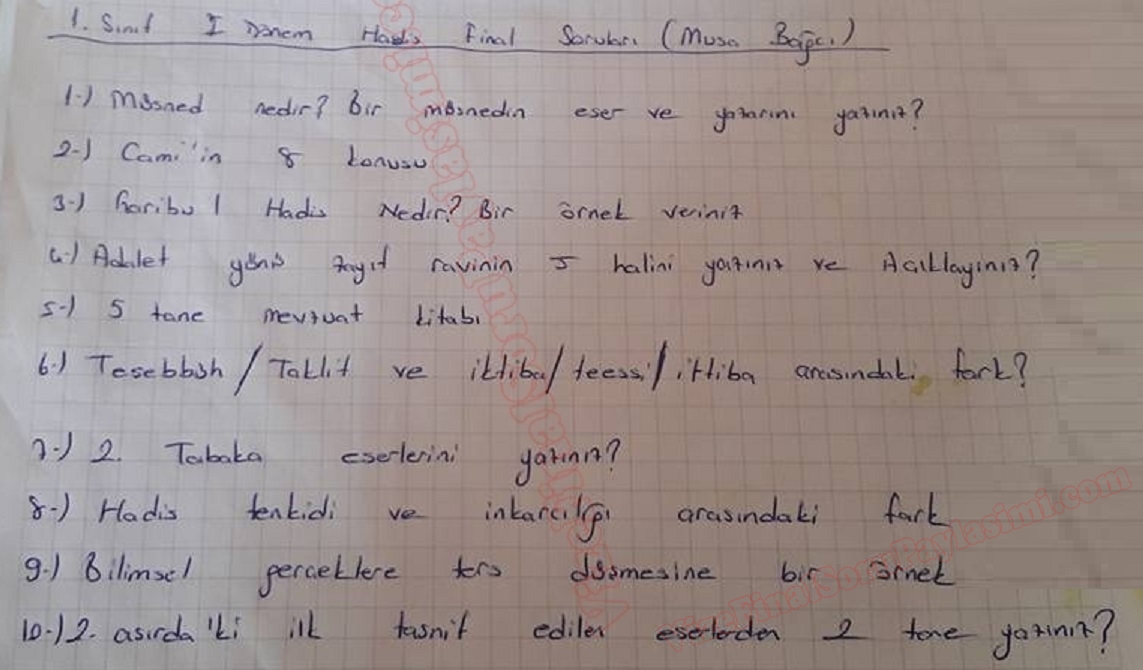 1. Sınıf I Dönem Hadis Final Soruları (Musa Bağcı)
1-) Müsned nedir? Bir müsnedin eser ve yazarını yazınız?
2-) Cami'in 8 konusu
3-) Garibu'l Hadis Nedir? Bir örnek veriniz
4-) Adalet yönü zayıf ravinin 5 halini yazınız ve Açıklayınız?
5-) 5 tane mevzuat kitabı
6-) Teşebbüh / Taklit ve iktiba / teessi / ittiba arasındaki fark?
7-) 2. Tabaka eserlerini yazınız?
8-) Hadis tenkidi ve inkarcılığı arasındaki fark
9-) Bilimsel gerçeklere ters düşmesine bir örnek
10-) 2. asırda'ki ilk tasnif edilen eserlerden 2 tane yazınız?